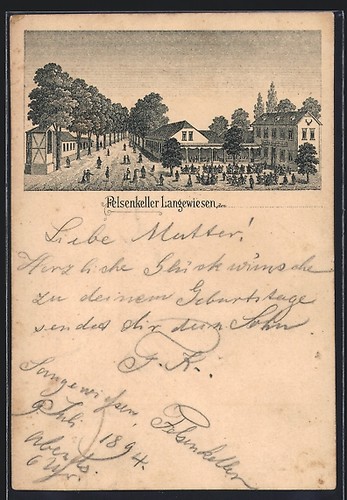 Felsenkeller Langewiesen, den
Liebe Mutter!
Herzliche Glückwünsche
zu deinem Geburtstage
sendet dir dein Sohn
F. K.
Langewiesen,
9 Juli 1894.
Abends
6 Uhr.
Felsenkeller